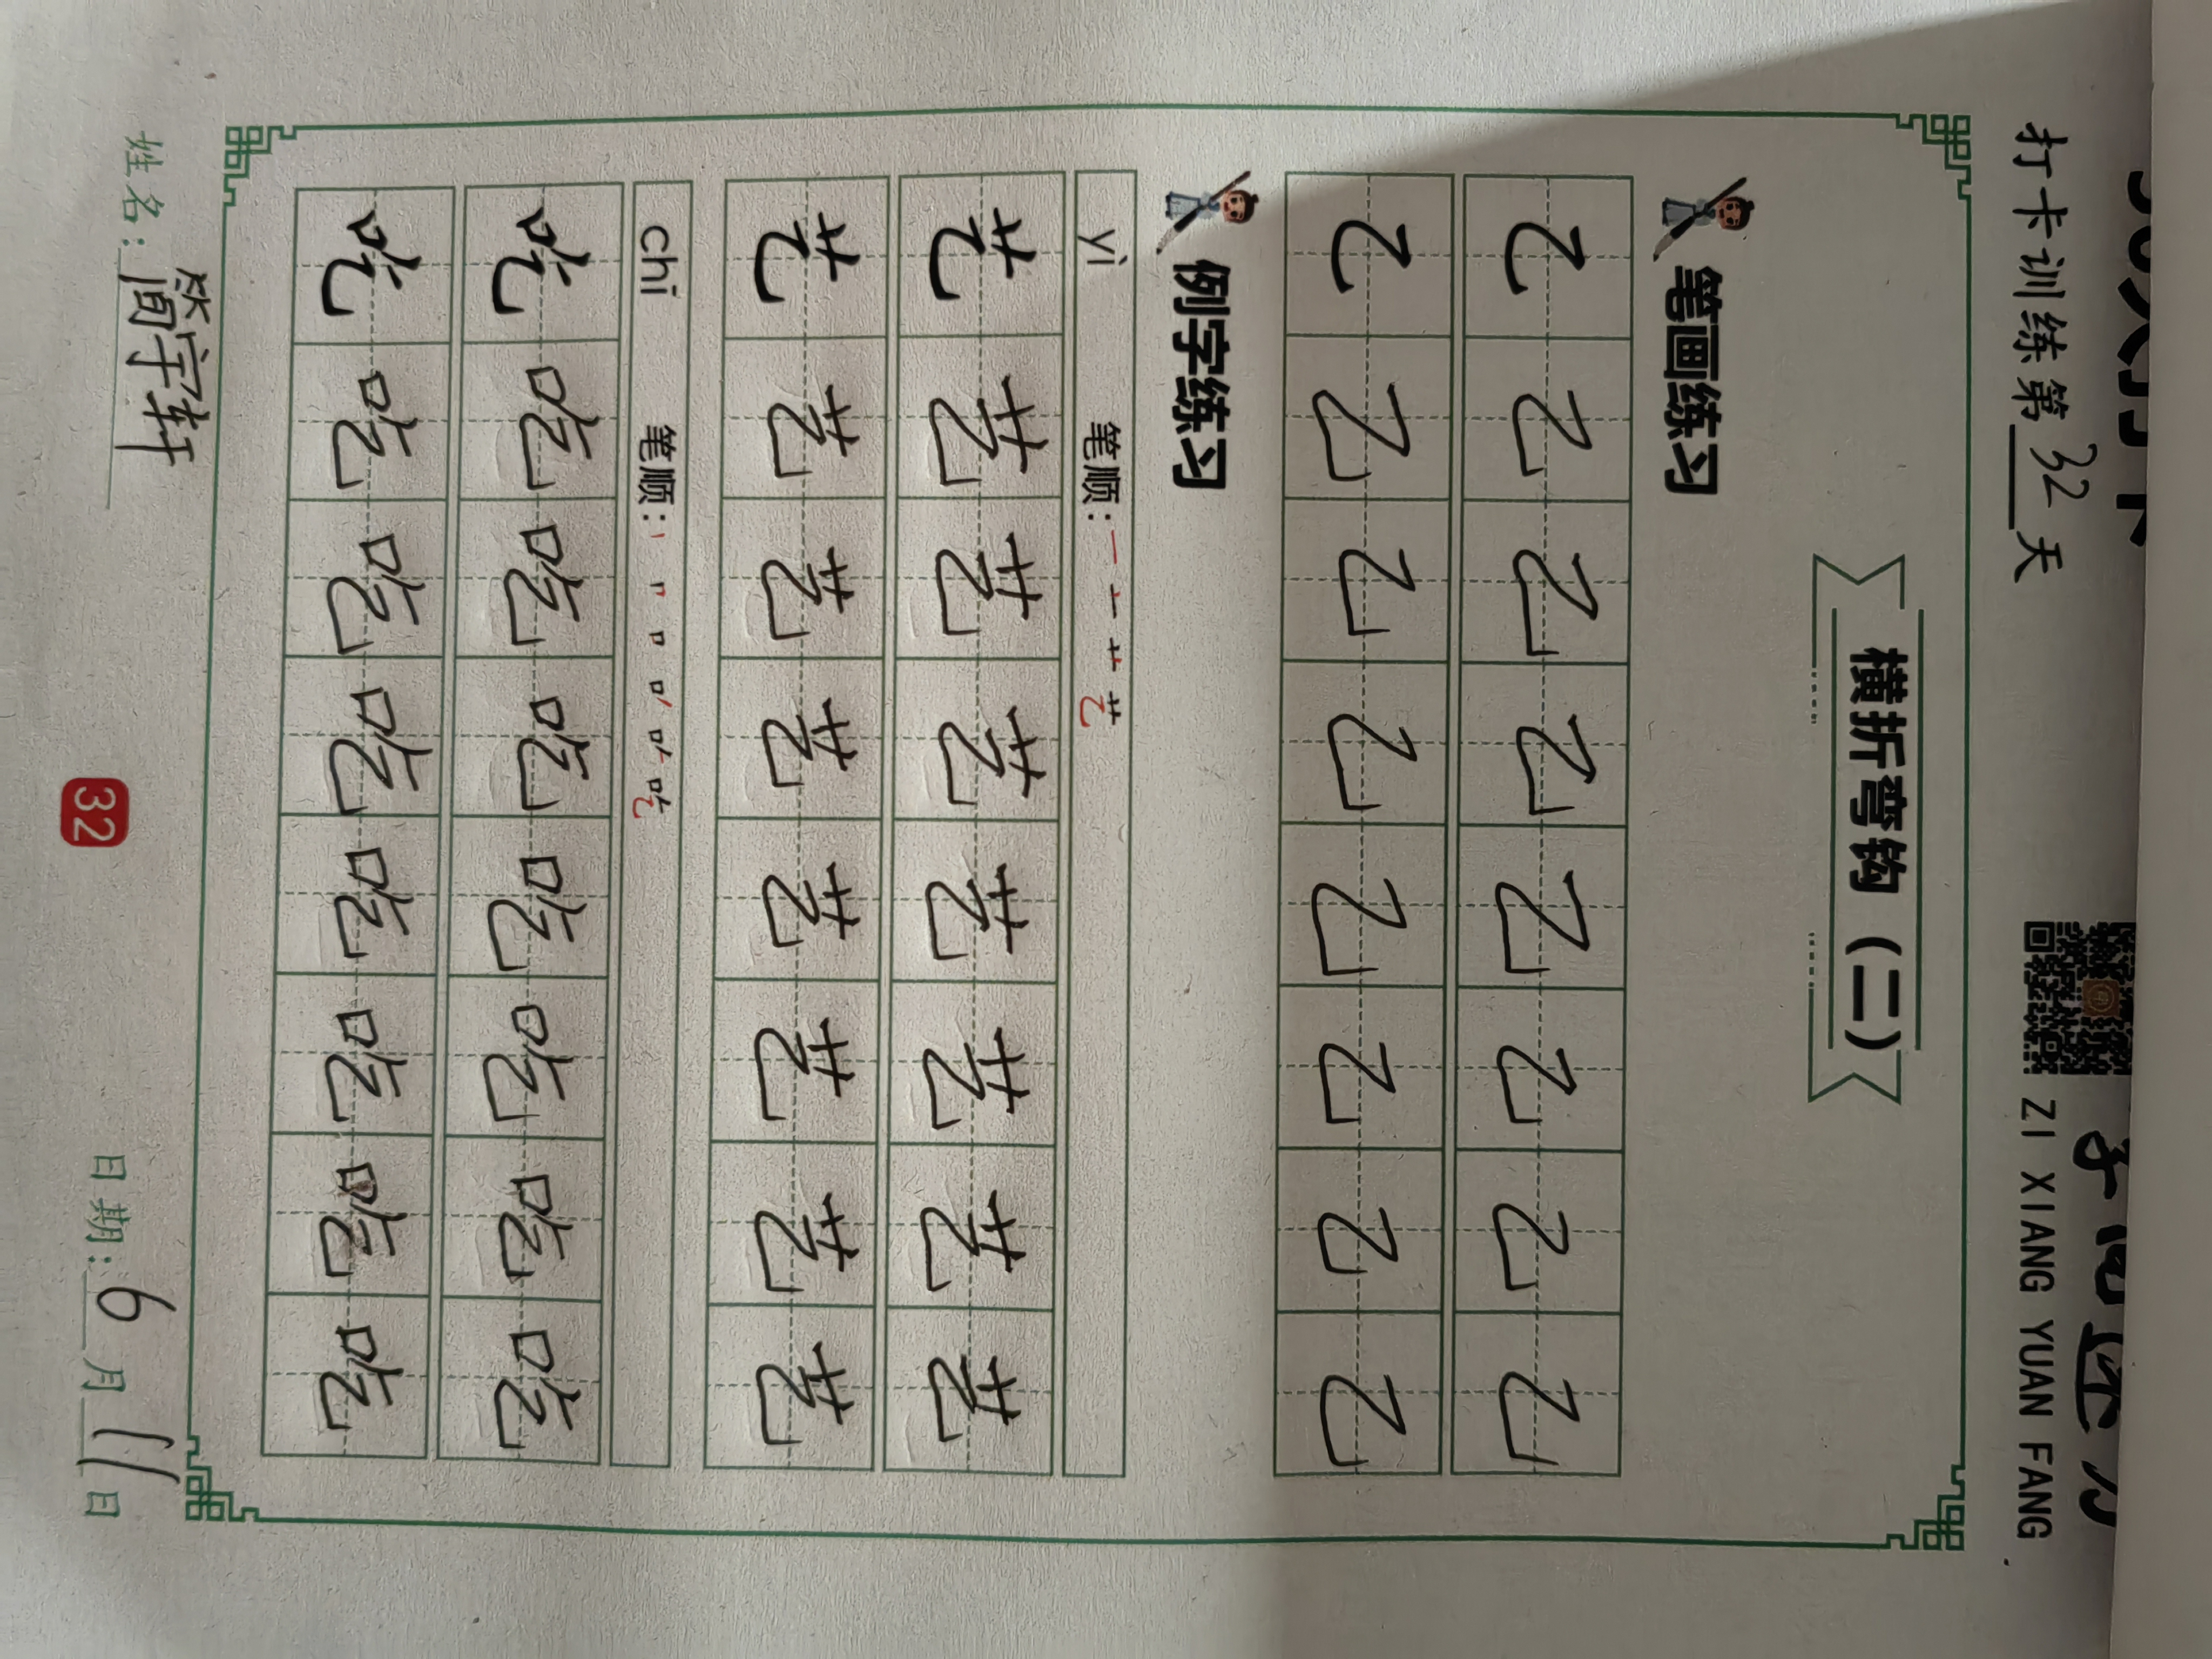 打卡训练第32天
ZI XIANG YUAN FANG
横折弯钩（二）
笔画练习
乙乙乙乙乙乙乙乙
乙乙乙乙乙乙乙乙
例字练习
yì 笔顺：一 艹 艺
艺艺艺艺艺艺艺艺
艺艺艺艺艺艺艺艺
chī 笔顺：丨 口 吃
吃吃吃吃吃吃吃吃
吃吃吃吃吃吃吃吃
姓名：简宇轩
日期：6月11日
32